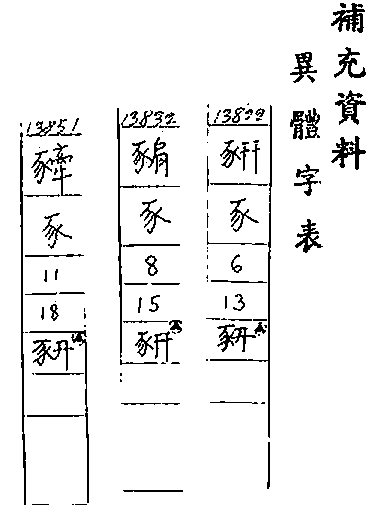 補充資料
異體字表
13822
豣
豕
6
13
13832
豕
8
15
豜
13851
豕
11
18